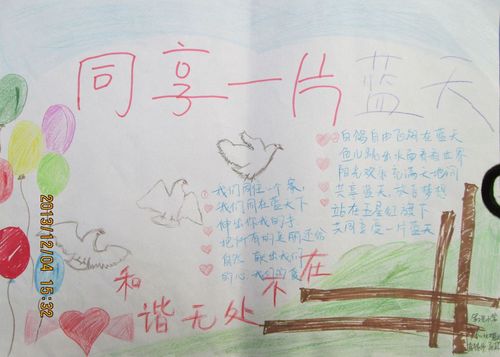 同享一片蓝天
①我们同住一个家,
我们同在蓝天下
伸出你我的手
把所有的美丽还给
自然 献出我们
的心 我们的爱
②白鸽自由飞翔在蓝天
鱼儿跳出水面看看世界
阳光欢乐充满大地间
共享蓝天 放飞梦想
站在五星红旗下
共同享受一片蓝天
和谐无处不在
2013/12/04 15:32